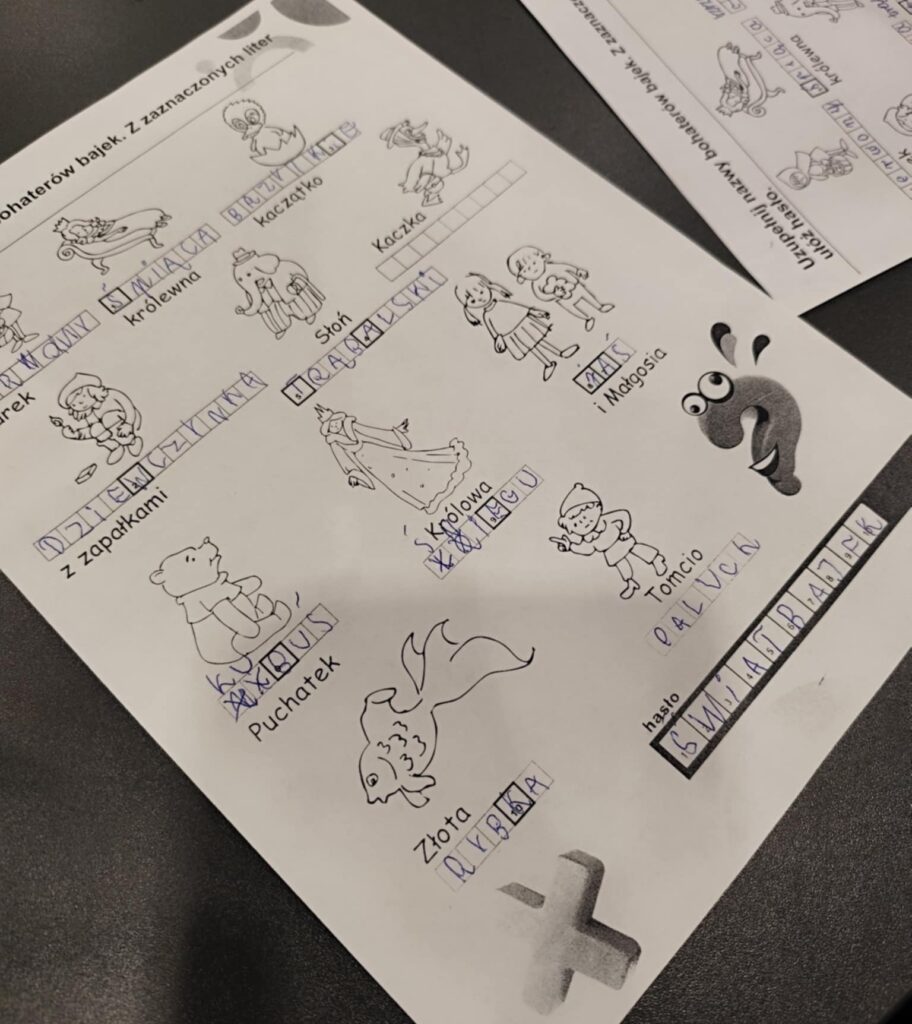 bohaterów bajek. Z zaznaczonych liter
ŚPIĄCA
królewna
BRZYDKIE
kaczątko
Kaczka
Słoń
TRĄBALSKI
JAŚ
i Małgosia
DZIEWCZYNKA
z zapałkami
Królowa
ŚNIEGU
Tomcio
PALUCH
KUBUŚ
Puchatek
Złota
RYBKA
hasło
ŚWIAT BAJEK
Uzupełnij nazwy bohaterów bajek. Z zaznaczo
ułóż hasło.
śpiąca
królewna